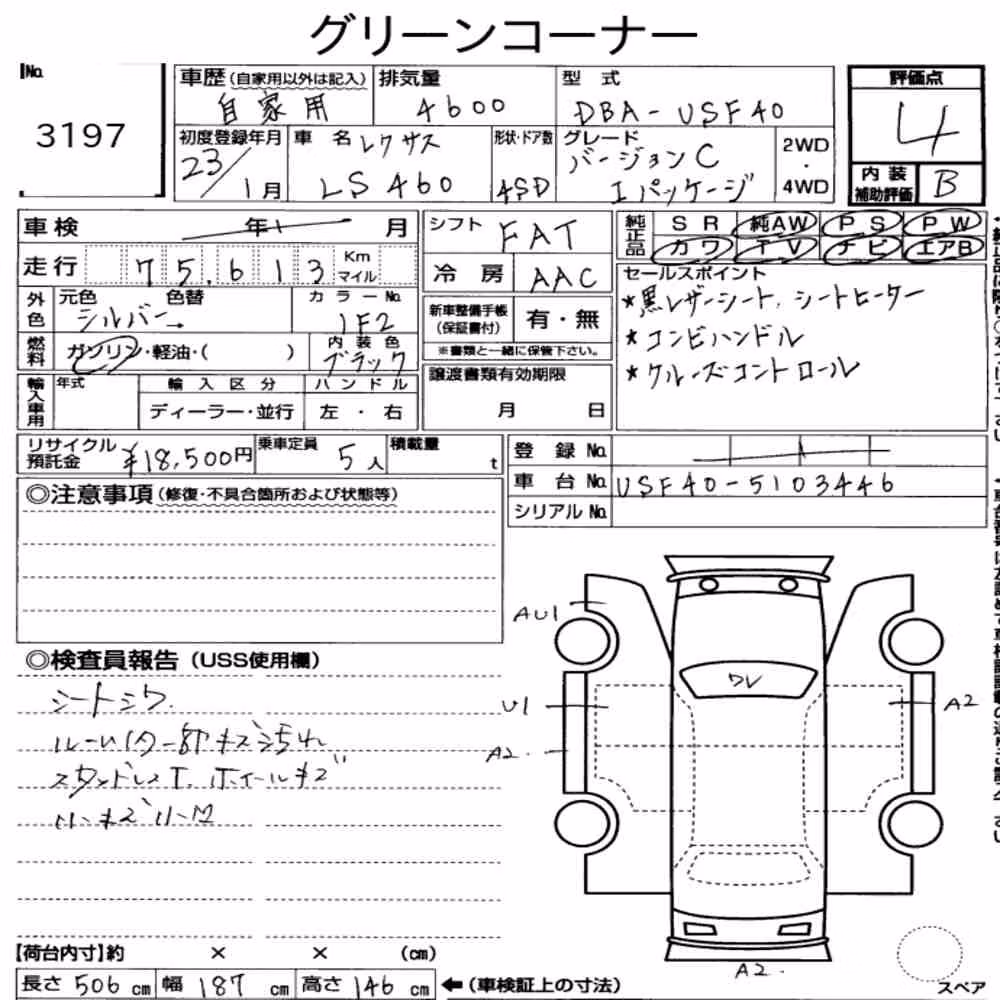 グリーンコーナー
No.
3197
車歴 (自家用以外は記入)
自家用
排気量
4600
型式
DBA-USF40
評価点
4
内装補助評価 B
初度登録年月
23/1月
車名 レクサス
LS460
形状・ドア数
4SD
グレード
バージョンC
Iパッケージ
2WD
・
4WD
車検 年 月
走行 75,613 Km マイル
外色 元色 色替
シルバー→
カラーNo.
1F2
燃料 ガソリン・軽油・( )
内装色
ブラック
輸入車用 年式 輸入区分 ハンドル
ディーラー・並行 左・右
シフト FAT
冷房 AAC
新車整備手帳 (保証書付) 有・無
※書類と一緒に保管下さい。
譲渡書類有効期限
月 日
純正品 SR 純AW PS PW
カワ TV ナビ エアB
セールスポイント
*黒レザーシート、シートヒーター
*コンビハンドル
*クルーズコントロール
リサイクル預託金 ¥18,500円
乗車定員 5人
積載量 t
登録No.
車台No. USF40-5103446
シリアルNo.
◎注意事項 (修復・不具合箇所および状態等)
◎検査員報告 (USS使用欄)
シートシワ
キズ汚れ
スタッドレスT. ホイールキズ
小キズ小凹
AU1
U1
A2.
ワレ
A2
A2.
スペア
【荷台内寸】約 × × (cm)
長さ 506 cm 幅 187 cm 高さ 146 cm ←(車検証上の寸法)